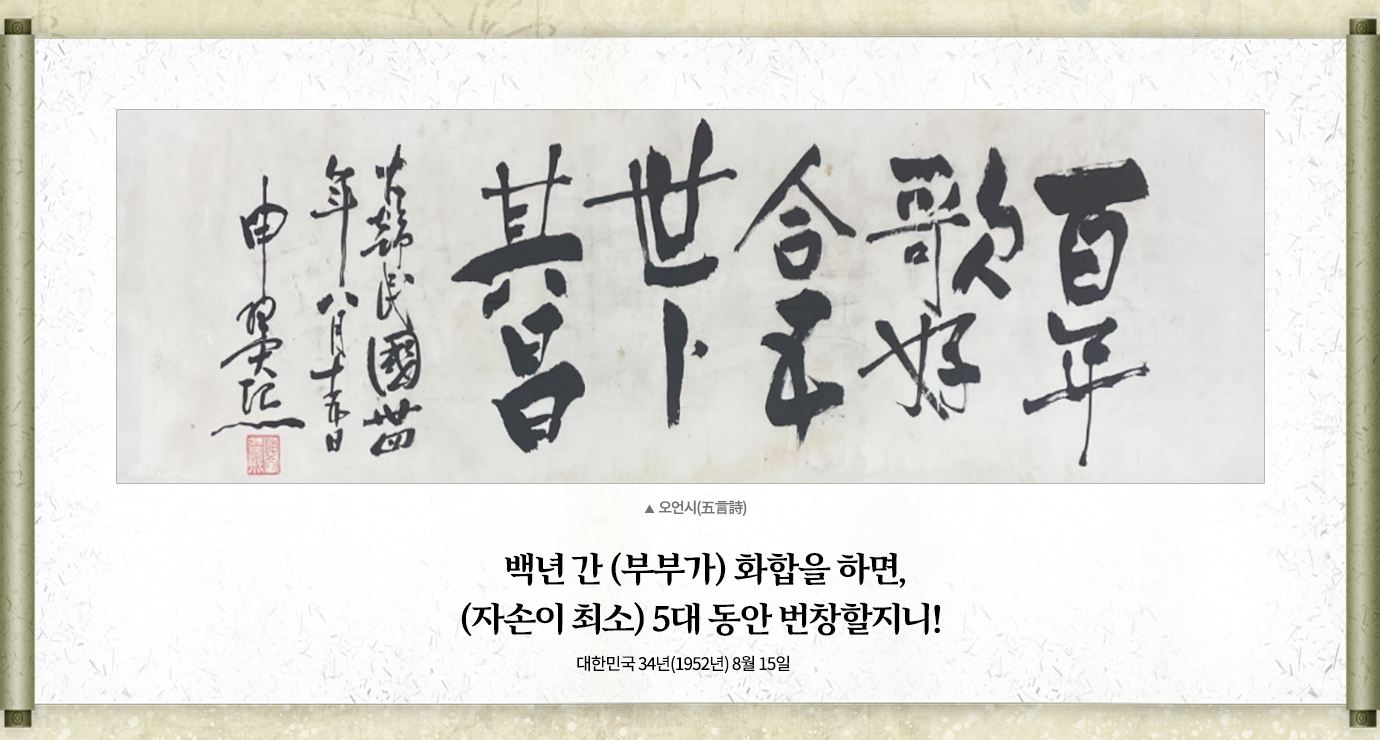 百年
歌好
合五
世卜
其昌
大韓民國卅四
年八月十五日
申翼熙
▲ 오언시(五言詩)
백년 간 (부부가) 화합을 하면,
(자손이 최소) 5대 동안 번창할지니!
대한민국 34년(1952년) 8월 15일